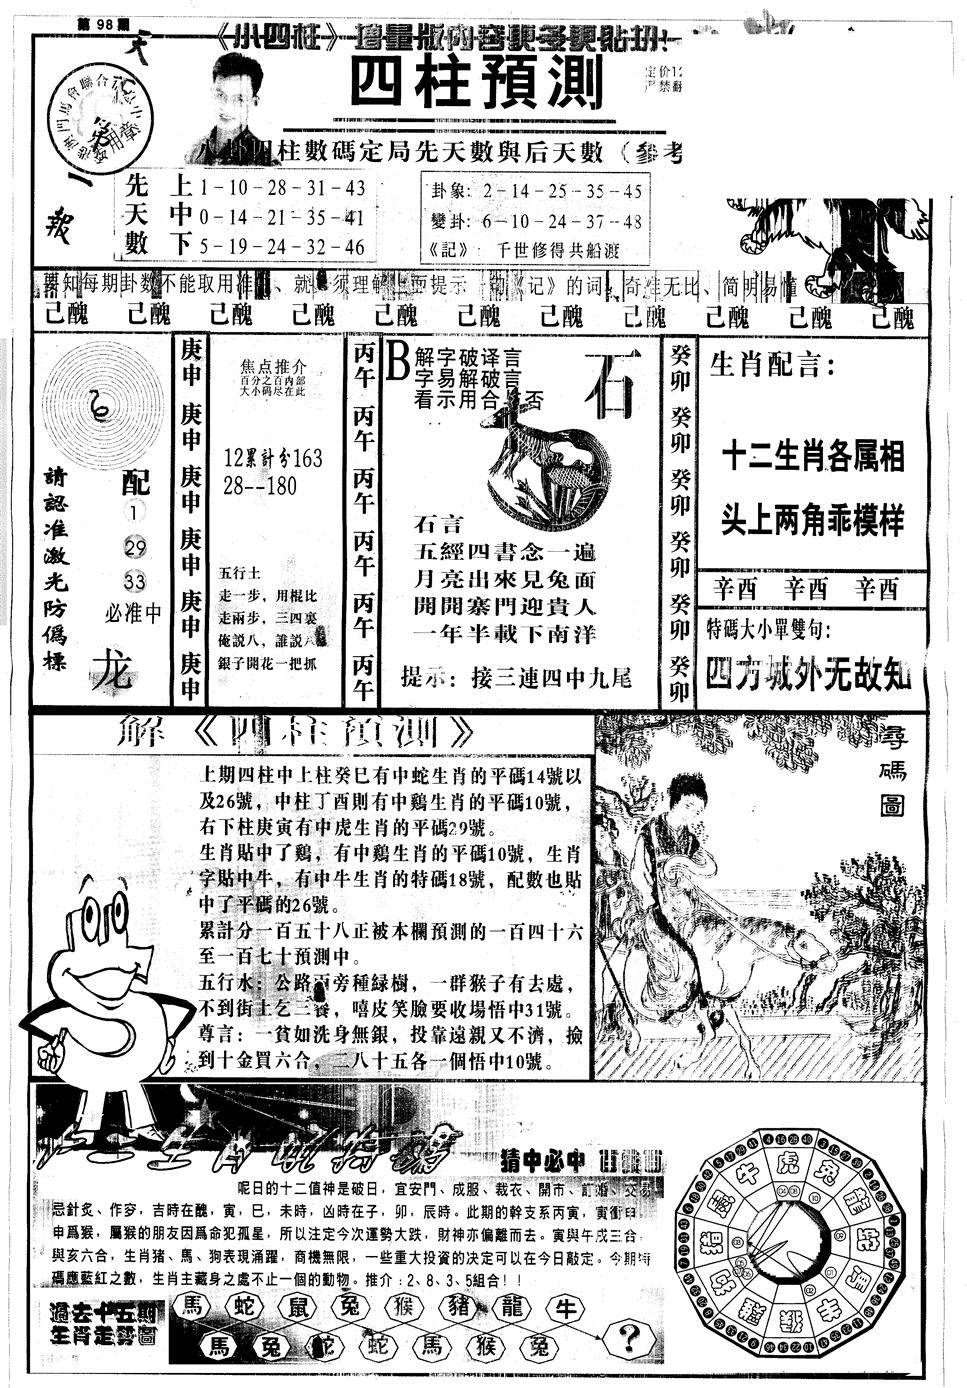 第 98 期
《小四柱》增量版内容更多更貼切!
四柱預測
天
一
報
定价12
严禁翻
八卦四柱數碼定局先天數與后天數（參考
先天數
上 1-10-28-31-43
中 0-14-21-35-41
下 5-19-24-32-46
卦象: 2-14-25-35-45
變卦: 6-10-24-37-48
《記》 千世修得共船渡
要知每期卦数不能取用准 、就 须理解 面提示 《记》的词，奇准无比、简明易懂
己醜 己醜 己醜 己醜 己醜 己醜 己醜 己醜 己醜 己醜 己醜
請認准激光防偽標
配
1
29
33
必准中
龙
庚申 庚申 庚申 庚申 庚申 庚申
焦点推介
百分之百内部
大小码尽在此
12累計分163
28--180
五行土
走一步，用棍比
走兩步，三四裏
俺説八，誰説八
銀子開花一把抓
丙午 丙午 丙午 丙午 丙午 丙午
B
解字破译言
字易解破言
看示用合 否
石
石言
五經四書念一遍
月亮出來見兔面
開開寨門迎貴人
一年半載下南洋
提示: 接三連四中九尾
癸卯 癸卯 癸卯 癸卯 癸卯 癸卯
生肖配言:
十二生肖各属相
头上两角乖模样
辛酉 辛酉 辛酉
特碼大小單雙句:
四方城外无故知
解《四柱預測》
上期四柱中上柱癸巳有中蛇生肖的平碼14號以
及26號，中柱丁酉則有中鷄生肖的平碼10號，
右下柱庚寅有中虎生肖的平碼29號。
生肖貼中了鷄，有中鷄生肖的平碼10號，生肖
字貼中牛，有中牛生肖的特碼18號，配數也貼
中了平碼的26號。
累計分一百五十八正被本欄預測的一百四十六
至一百七十預測中。
五行水: 公路兩旁種緑樹，一群猴子有去處，
不到街上乞三餐，嘻皮笑臉要收場悟中31號。
尊言: 一貧如洗身無銀，投靠遠親又不濟，撿
到十金買六合，二八十五各一個悟中10號。
尋碼圖
猜中必中
呢日的十二值神是破日，宜安門、成服、裁衣、開市、訂婚、交易
忌針炙、作穸，吉時在醜，寅，巳，未時，凶時在子，卯，辰時。此期的幹支系丙寅，寅衝申
申爲猴，屬猴的朋友因爲命犯孤星，所以注定今次運勢大跌，財神亦偏離而去。寅與午戌三合，
與亥六合，生肖猪、馬、狗表現涌躍，商機無限，一些重大投資的决定可以在今日敲定。今期特
碼應藍紅之數，生肖主藏身之處不止一個的動物。推介: 2、8、3、5組合!!
過去十五期
生肖走勢圖
馬 蛇 鼠 兔 猴 豬 龍 牛
馬 兔 蛇 蛇 馬 猴 兔
?
虎 兔 龍
牛
馬
羊